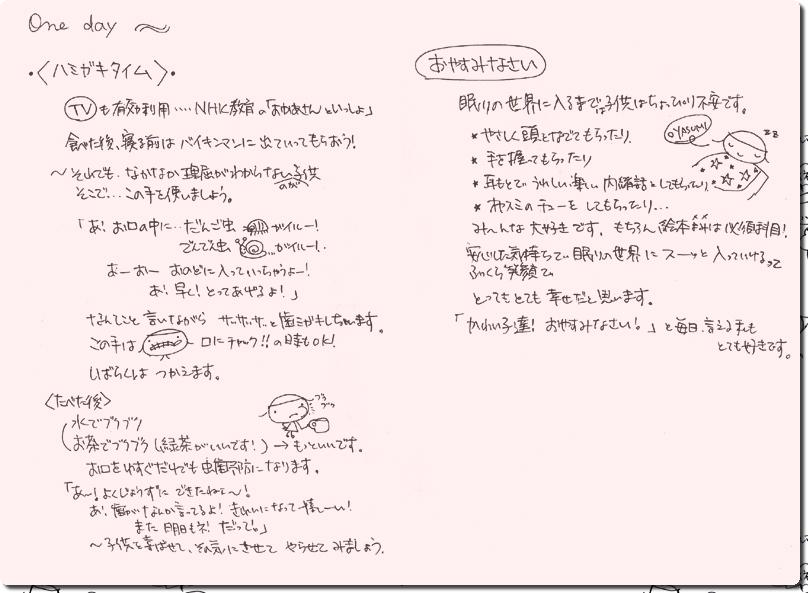 One day
・〈ハミガキタイム〉・
TVも有効利用‥‥NHK教育の「おかあさんといっしょ」
食べた後、寝る前はバイキンマンに出ていってもらおう!
～それでも、なかなか理屈がわからない子供
のが
そこで…この手を使いましょう。
「あ!お口の中に‥だんご虫がイルー!
でんでん虫…がイルー!.
おーおー おのどに入っていっちゃうよー!
あ!早く!とってあげるよ!」
なんてこと言いながら サッサッサッと歯ミガキしちゃいます。
この手は、口にチャック!!の時もOK!
しばらくは つかえます。
〈たべた後〉
水でブクブク
お茶でブクブク(緑茶がいいです!)→もっといいです。
ブク
お口をゆすぐだけでも虫歯予防になります。
「あ～!よくじょうずに できたねェ～!
あ!歯がなんか言ってるよ!きれいになって嬉しーい!
また明日もネ! だって。」
～子供を喜ばせて、その気にさせて やらせてみましょう。
おやすみなさい
眠りの世界に入るまでは子供はちょっぴり不安です。
＊やさしく頭をなでてもらったり
＊手を握ってもらったり
＊耳もとで うれしい楽しい内緒話をしてもらったり
＊オヤスミのチューをしてもらったり…
OYASUMI
zz
みんな大好きです。もちろん絵本は必須科目!
安心した気持ちで眠りの世界にスーッと入っていけるって
ふっくら笑顔で
とってもとても幸せだと思います。
「かわいい子達! おやすみなさい!。」と毎日言える事も
とても好きです。